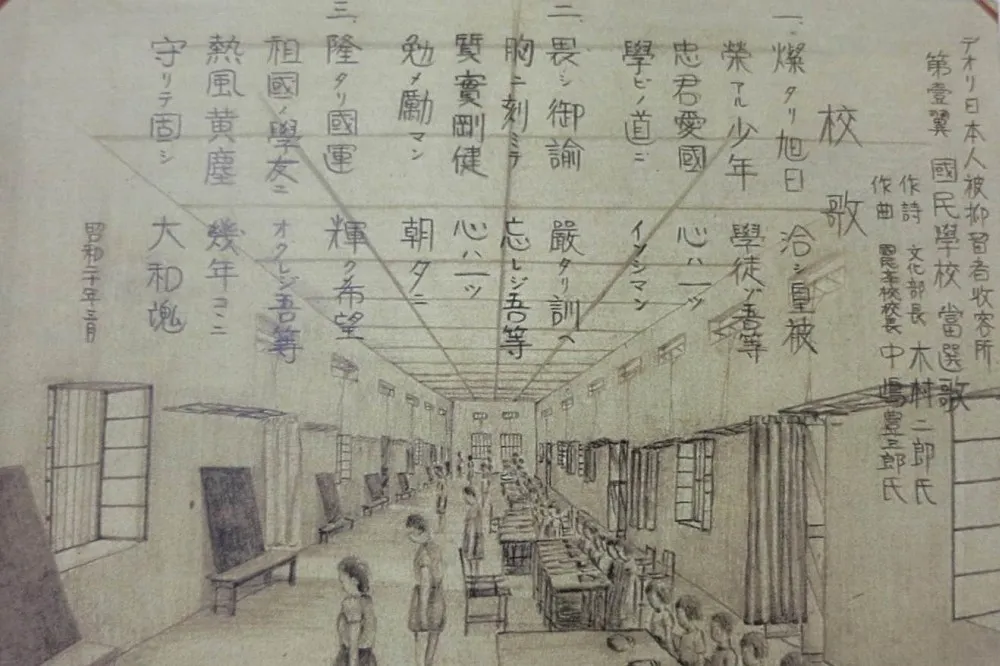 デオリ日本人被抑留者收容所
第壹翼 國民學校 當選歌
作詩 文化部長 木村二郎氏
作曲 國民学校校長 中嶋豊三郎氏
校歌
一、燦タリ旭日 洽シ皇被
榮アル少年 學徒ゾ吾等
忠君愛國 心ハ一ツ
學ビノ道ニ イソシマン
二、畏シ御諭 嚴タリ訓ヘ
胸ニ刻ミテ 忘レジ吾等
質實剛健 心ハ一ツ
勉メ勵マン 朝夕ニ
三、隆タリ國運 輝ク希望
祖國ノ學友ニ オクレジ吾等
熱風黄塵 幾年ココニ
守リテ固シ 大和魂
昭和二十年三月